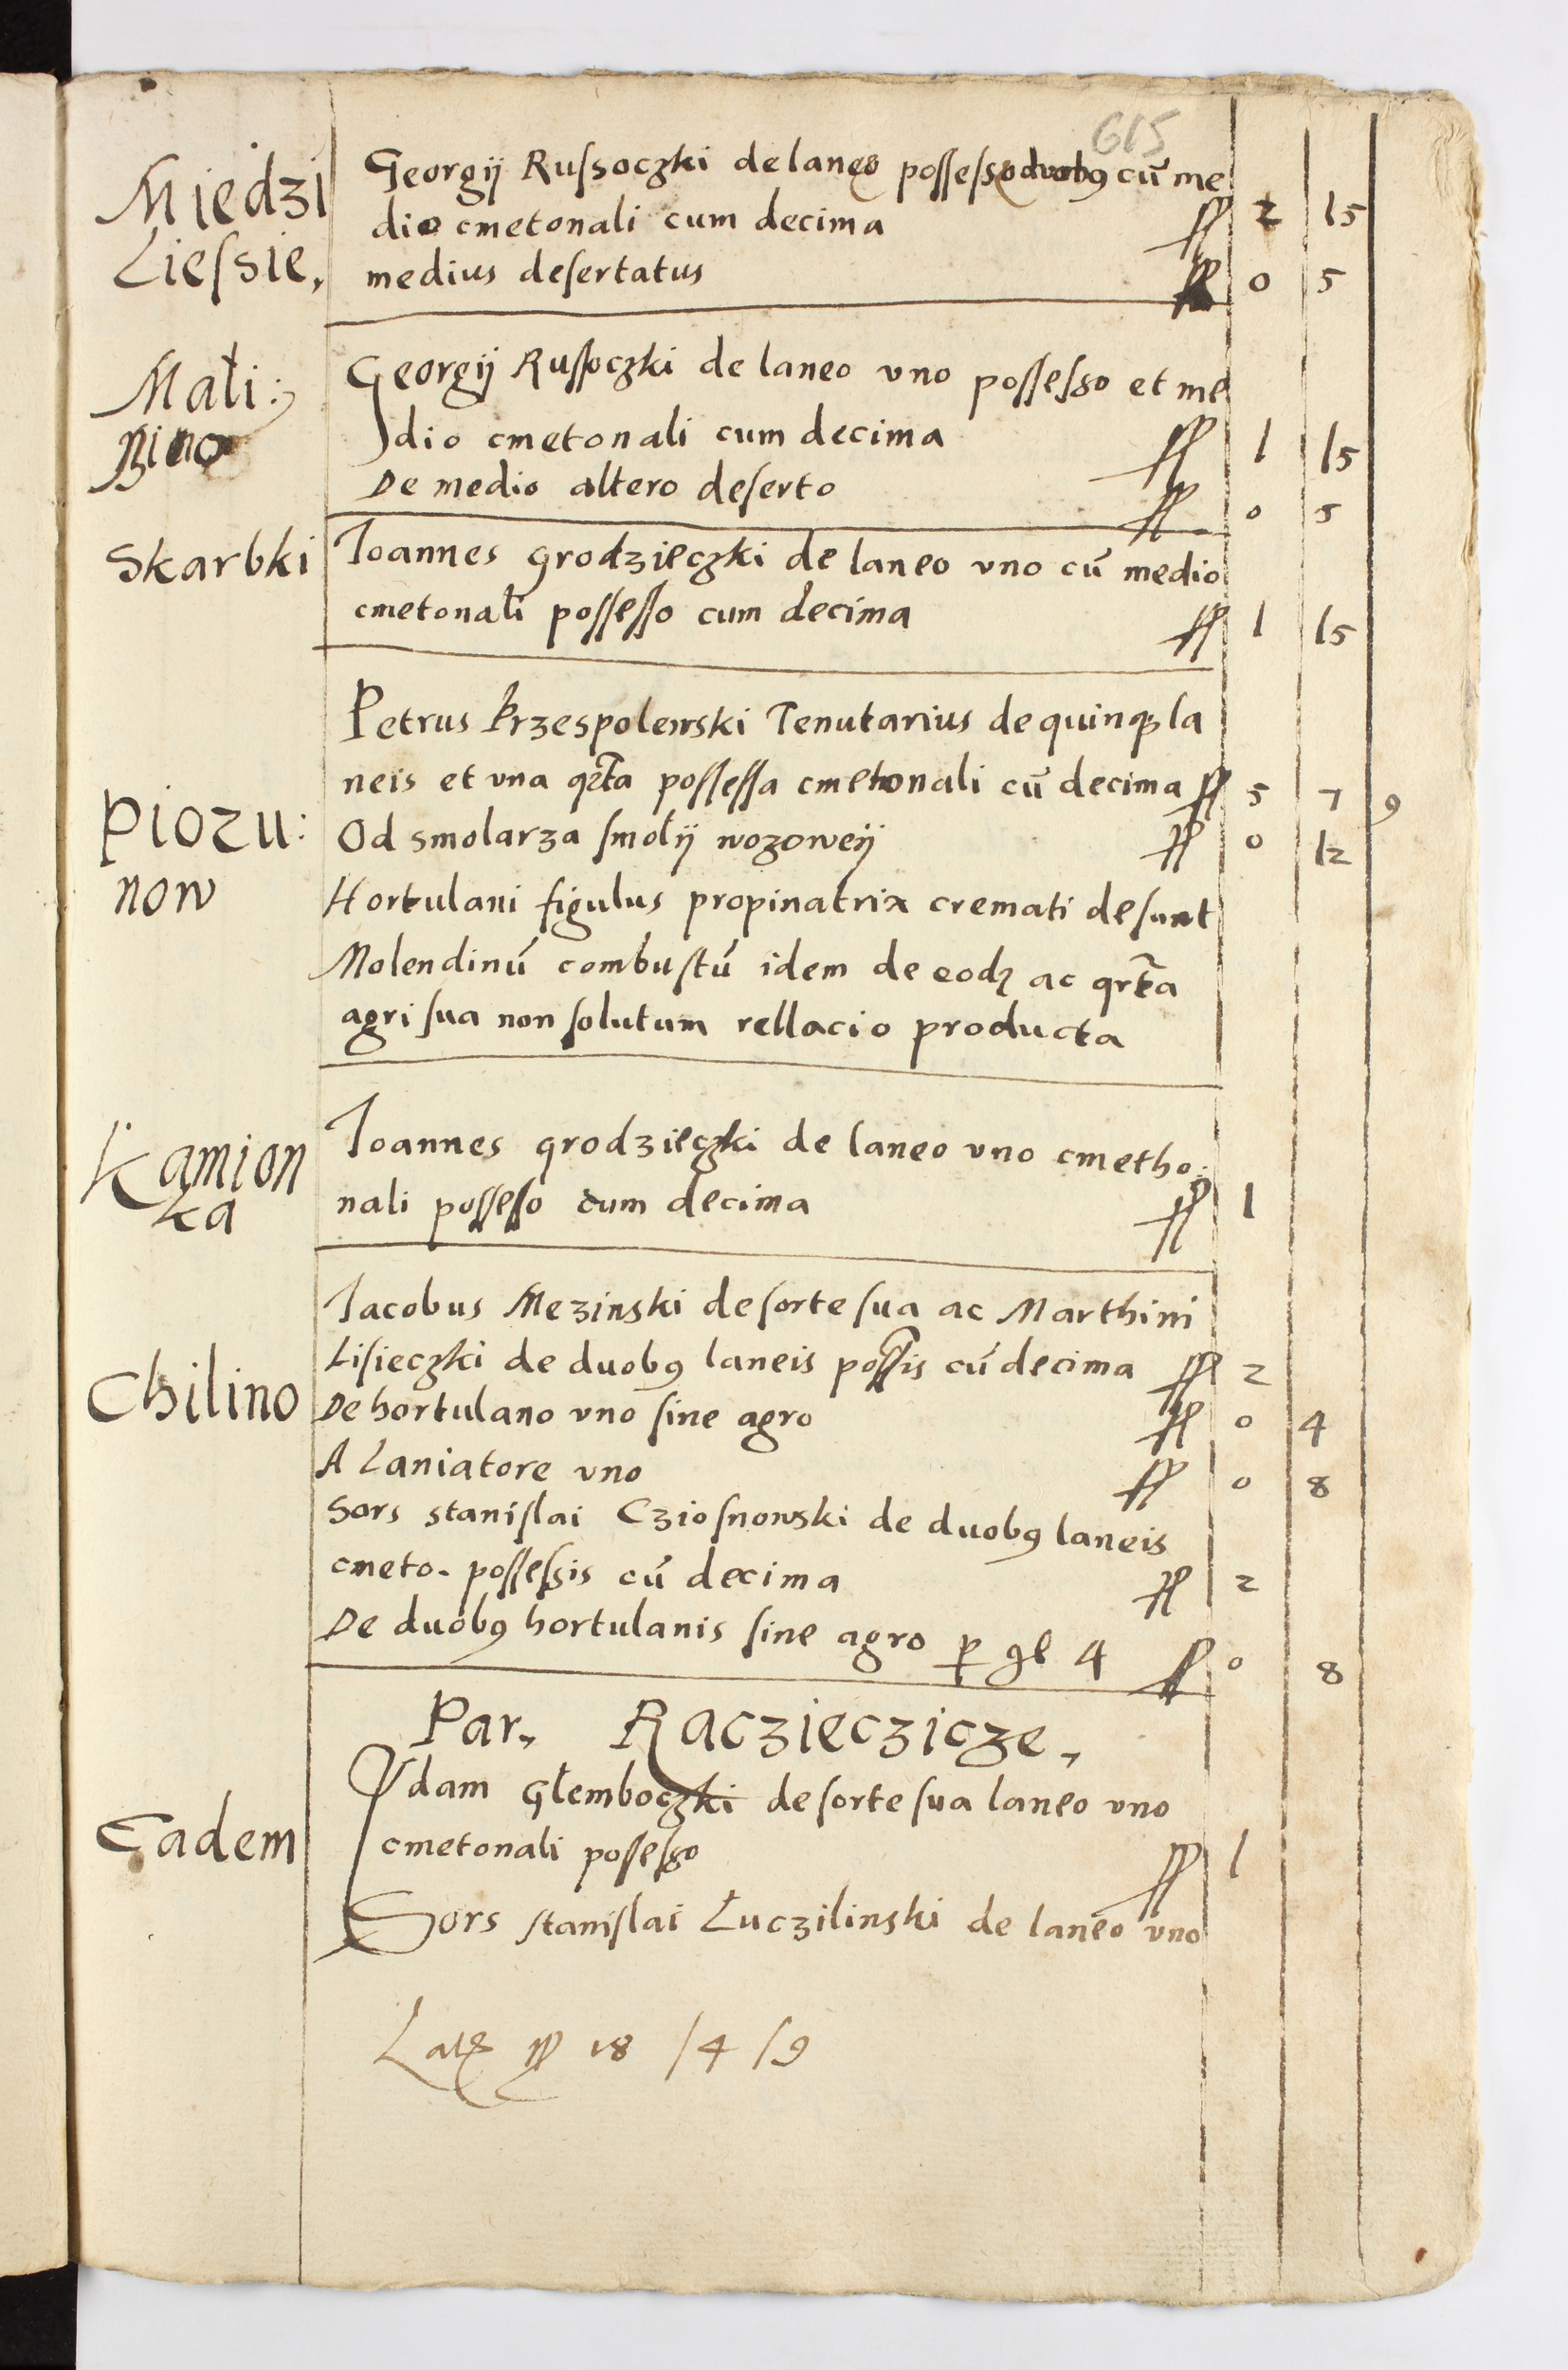 615
Miedzi
Liessie,
Georgij Russoczki de laneo possesso duobus cū me
dio cmetonali cum decima ff 2 15
medius desertatus ff 0 5
Mali:
nino
Georgij Russoczki de laneo vno possesso et me
dio cmetonali cum decima ff 1 15
De medio altero deserto ff 0 5
Skarbki
Joannes grodzieczki de laneo vno cū medio
cmetonali possesso cum decima ff 1 15
Piozu:
now
Petrus Przespolewski Tenutarius de quinqȝ la
neis et vna qrta possessa cmetonali cū decima ff 5 7 9
Od smolarza smoły wozowey ff 0 12
Hortulani figulus propinatrix cremati desunt
Molendinū combustū idem de eodȝ ac qrta
agri sua non solutum rellacio producta
Kamion
ka
Joannes grodzieczki de laneo vno cmetho:
nali possesso cum decima ff 1
Chilino
Jacobus Mezinski de sorte sua ac Marthini
Lisieczki de duob9 laneis possis cū decima ff 2
De hortulano vno sine agro ff 0 4
A Laniatore vno ff 0 8
Sors stanislai Cziosnowski de duob9 laneis
cmeto. possessis cū decima ff 2
De duob9 hortulanis sine agro p gl 4 ff 0 8
Par, Raczieczicze,
Eadem
Adam Głemboczki de sorte sua laneo vno
cmetonali possesso ff 1
Sors stanislai Łuczilinski de laneo vno
Latȩ ff 18 /4 /9